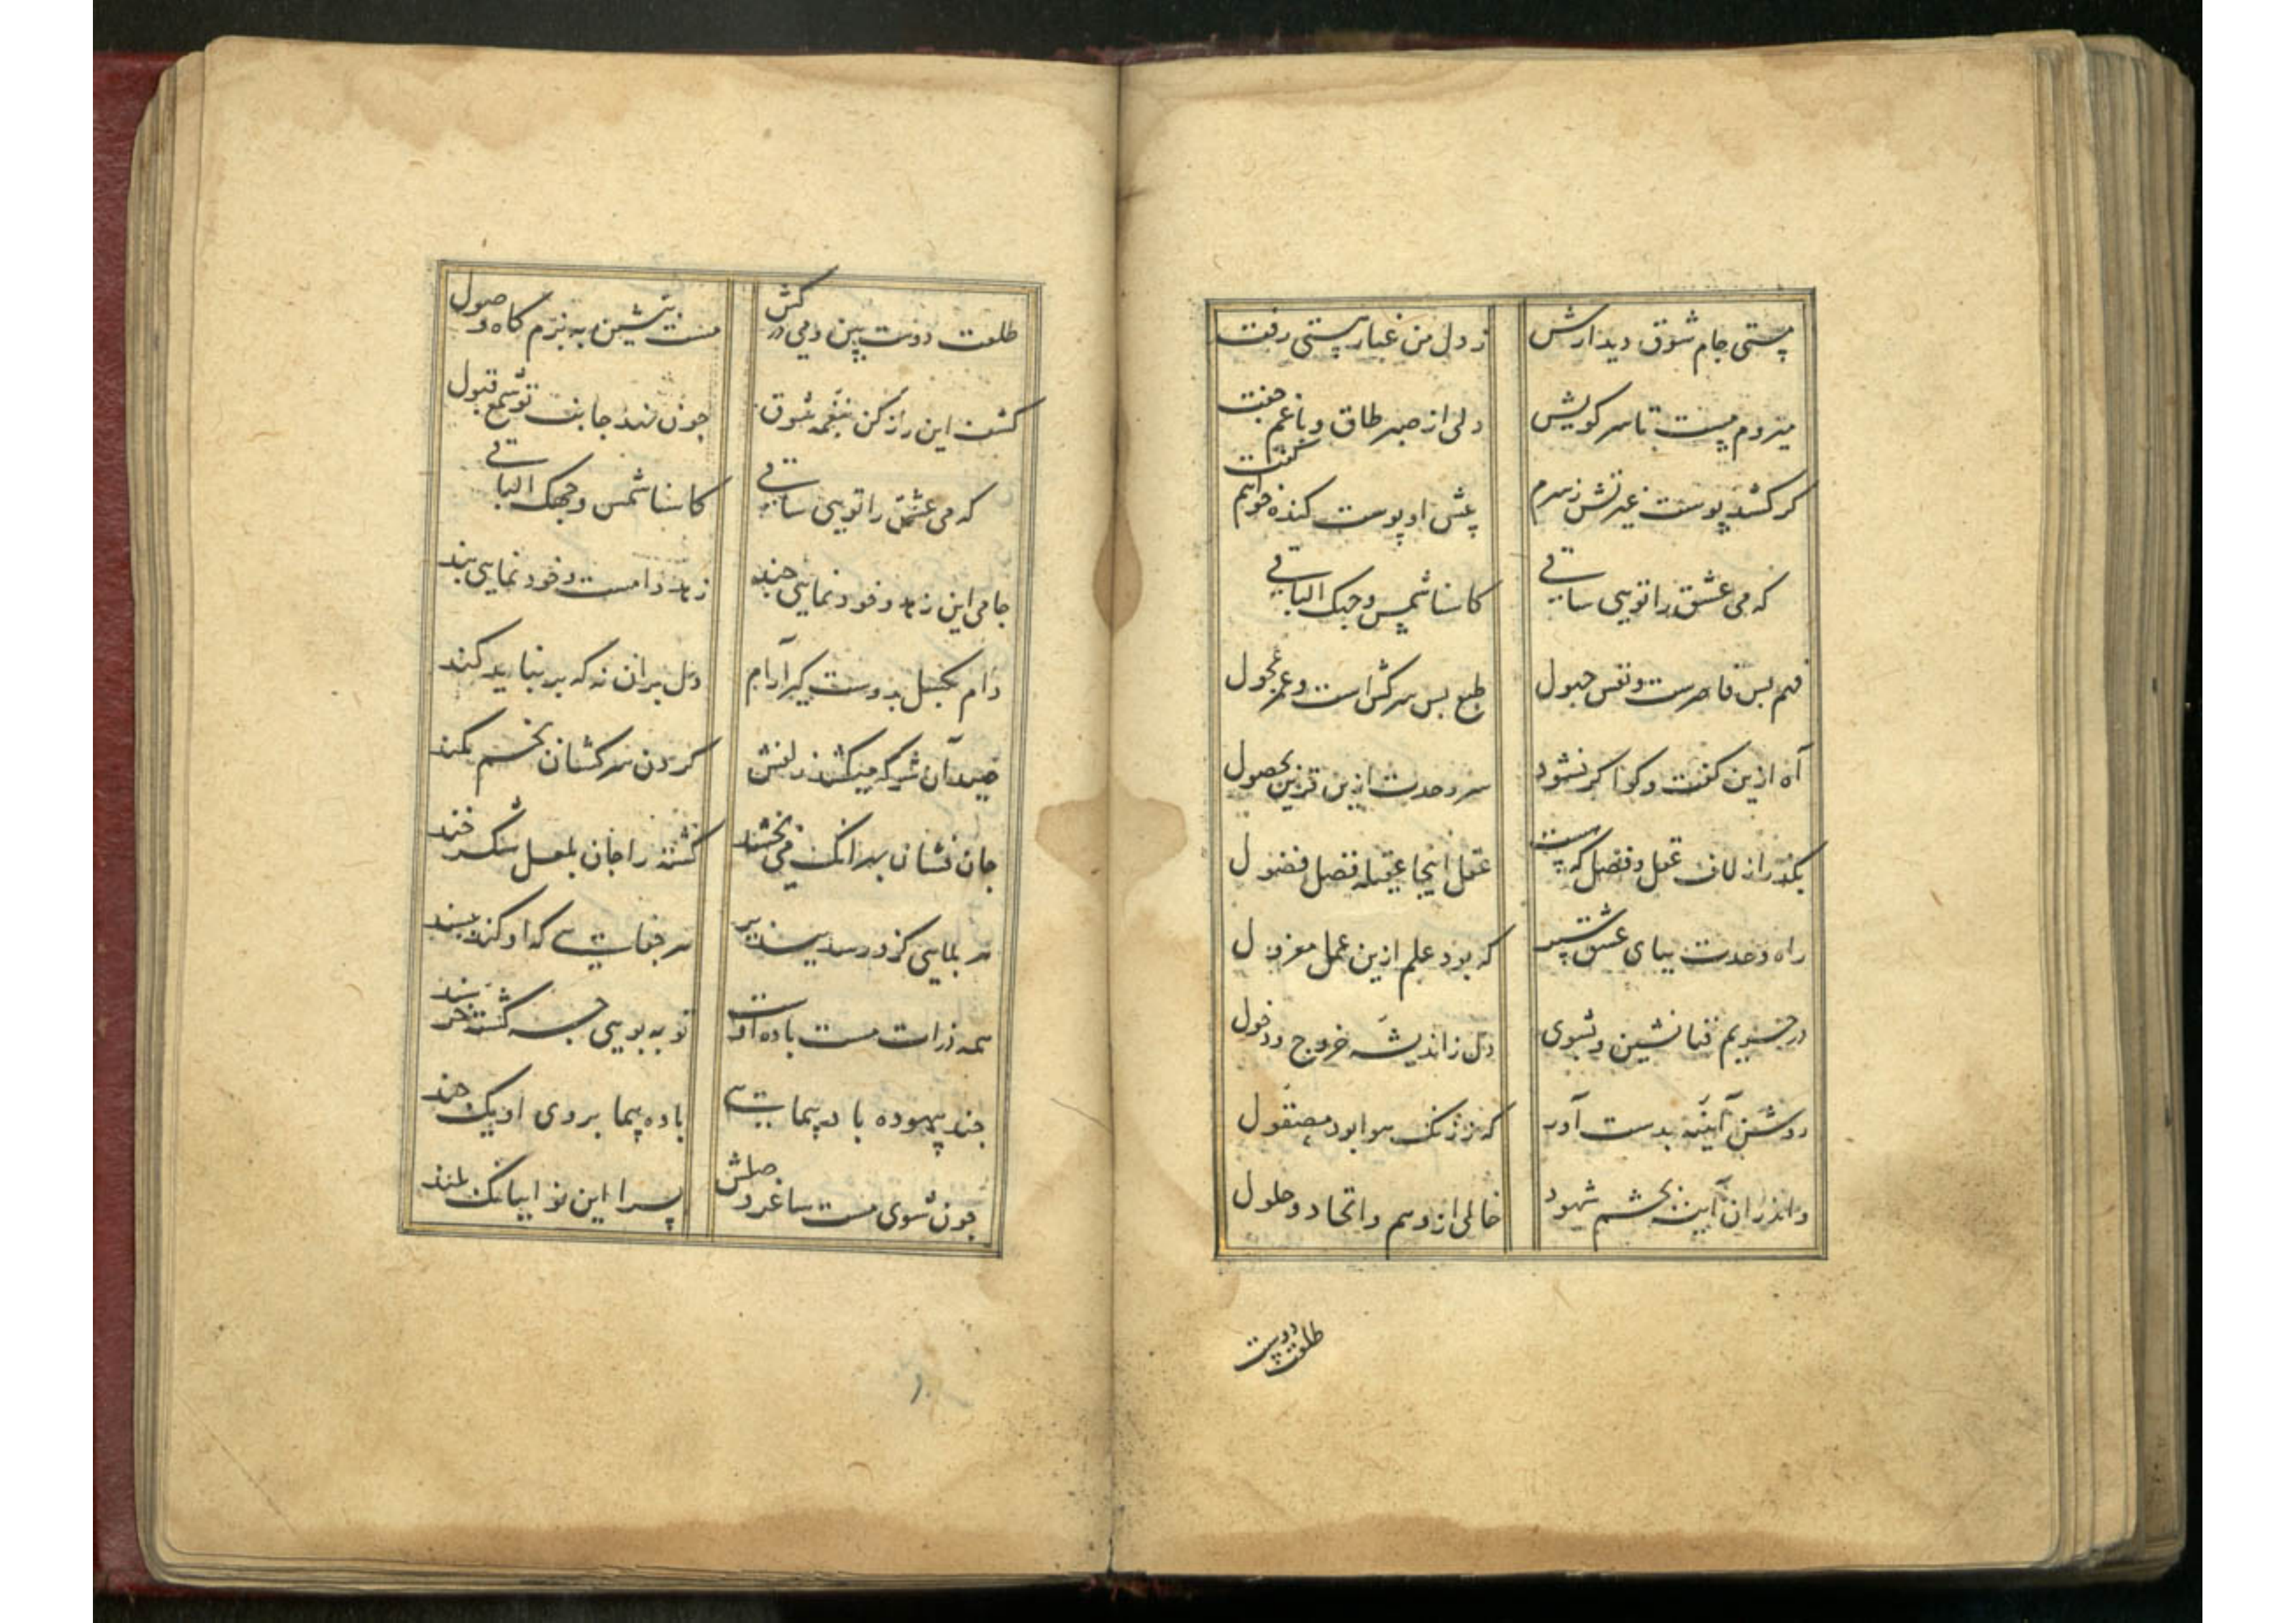 پستی جام شوق دیدارش ز دل من غبار هستی رفت
میروم مست تا سر کویش دلی از صبر طاق و با غم جفت
کر کشد پوست غیرتش ز سرم پیش او پوست کنده خواهم گفت
که می عشق را تویی ساقی کاسنا شمس وجهک الباقی
فهم بس قاصرست و نفس جهول طبع بس سرکش است و عمر عجول
آه ازین کفت و کو اکر نشود سر وحدت ازین قرین حصول
بکذر از لاف عقل و فضل که هست عقل اینجا عقیله فضل فضول
راه وحدت بپای عشق سپر که بود علم ازین عمل معزول
در حریم فنا نشین و بشوی دل ز اندیشه خروج و دخول
روشن آینه بدست آور که ز زنک هوا بود مصقول
واندران آینه بچشم شهود خالی از وهم و اتحاد و حلول
طلعت دوست
طلعت دوست بین و می در کش مست بنشین به بزم کاه وصول
کشف این راز کن بنغمه شوق چون نهد جانبت تو سمع قبول
که می عشق را تویی ساقی کاسنا شمس وجهک الباقی
جامی این زهد و خود نمایی چند زهد دامست و خود نمایی بند
دام بکسل بدوست کیر آرام دل بر آن نه که بر نباید کند
صید آن شو که میکشد زلفش کردن سرکشان بخم کمند
جان فشان بر آنک می بخشد کشته را جان بلعل شکر خند
هر بلایی کزو رسد بپذیر هر جفایی که او کند بپسند
همه ذرات مست باده اوست تو به بویی چه کشته خرسند
چند بیهوده باد پیمایی باده پیما بروی او یک چند
چون شوی مست ساغر وصلش بسرا این نوا ببانک بلند